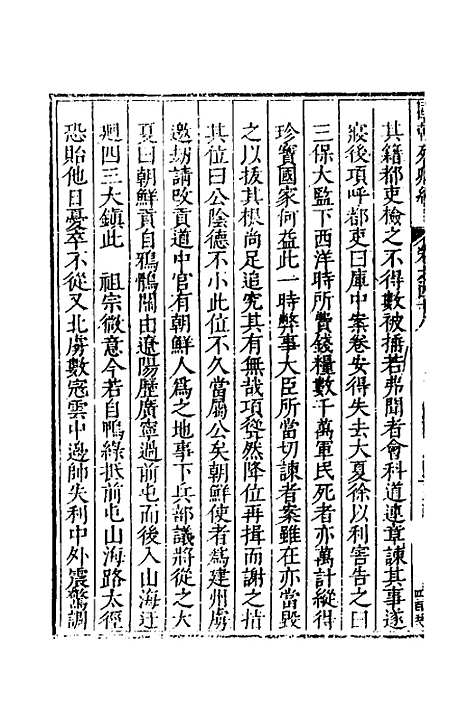 其籍都吏檢之不得數被搒若弗聞者會科道連章諫其事遂
寢後項呼都吏曰庫中案卷安得失去大夏徐以利害告之曰
三保大監下西洋時所費錢糧數千萬軍民死者亦萬計縱得
珍寶國家何益此一時弊事大臣所當切諫者案雖在亦當毀
之以拔其根尚足追究其有無哉項聳然降位再揖而謝之指
其位曰公陰德不小此位不久當屬公矣朝鮮使者為建州虜
邀劫請改貢道中官有朝鮮人為之地事下兵部議將從之大
夏曰朝鮮貢自鴉鶻關由遼陽歷廣寧過前屯而後入山海迂
迴四三大鎮此 祖宗微意今若自鴨綠抵前屯山海路太徑
恐貽他日憂卒不從又北虜數寇雲中邊師失利中外震驚調